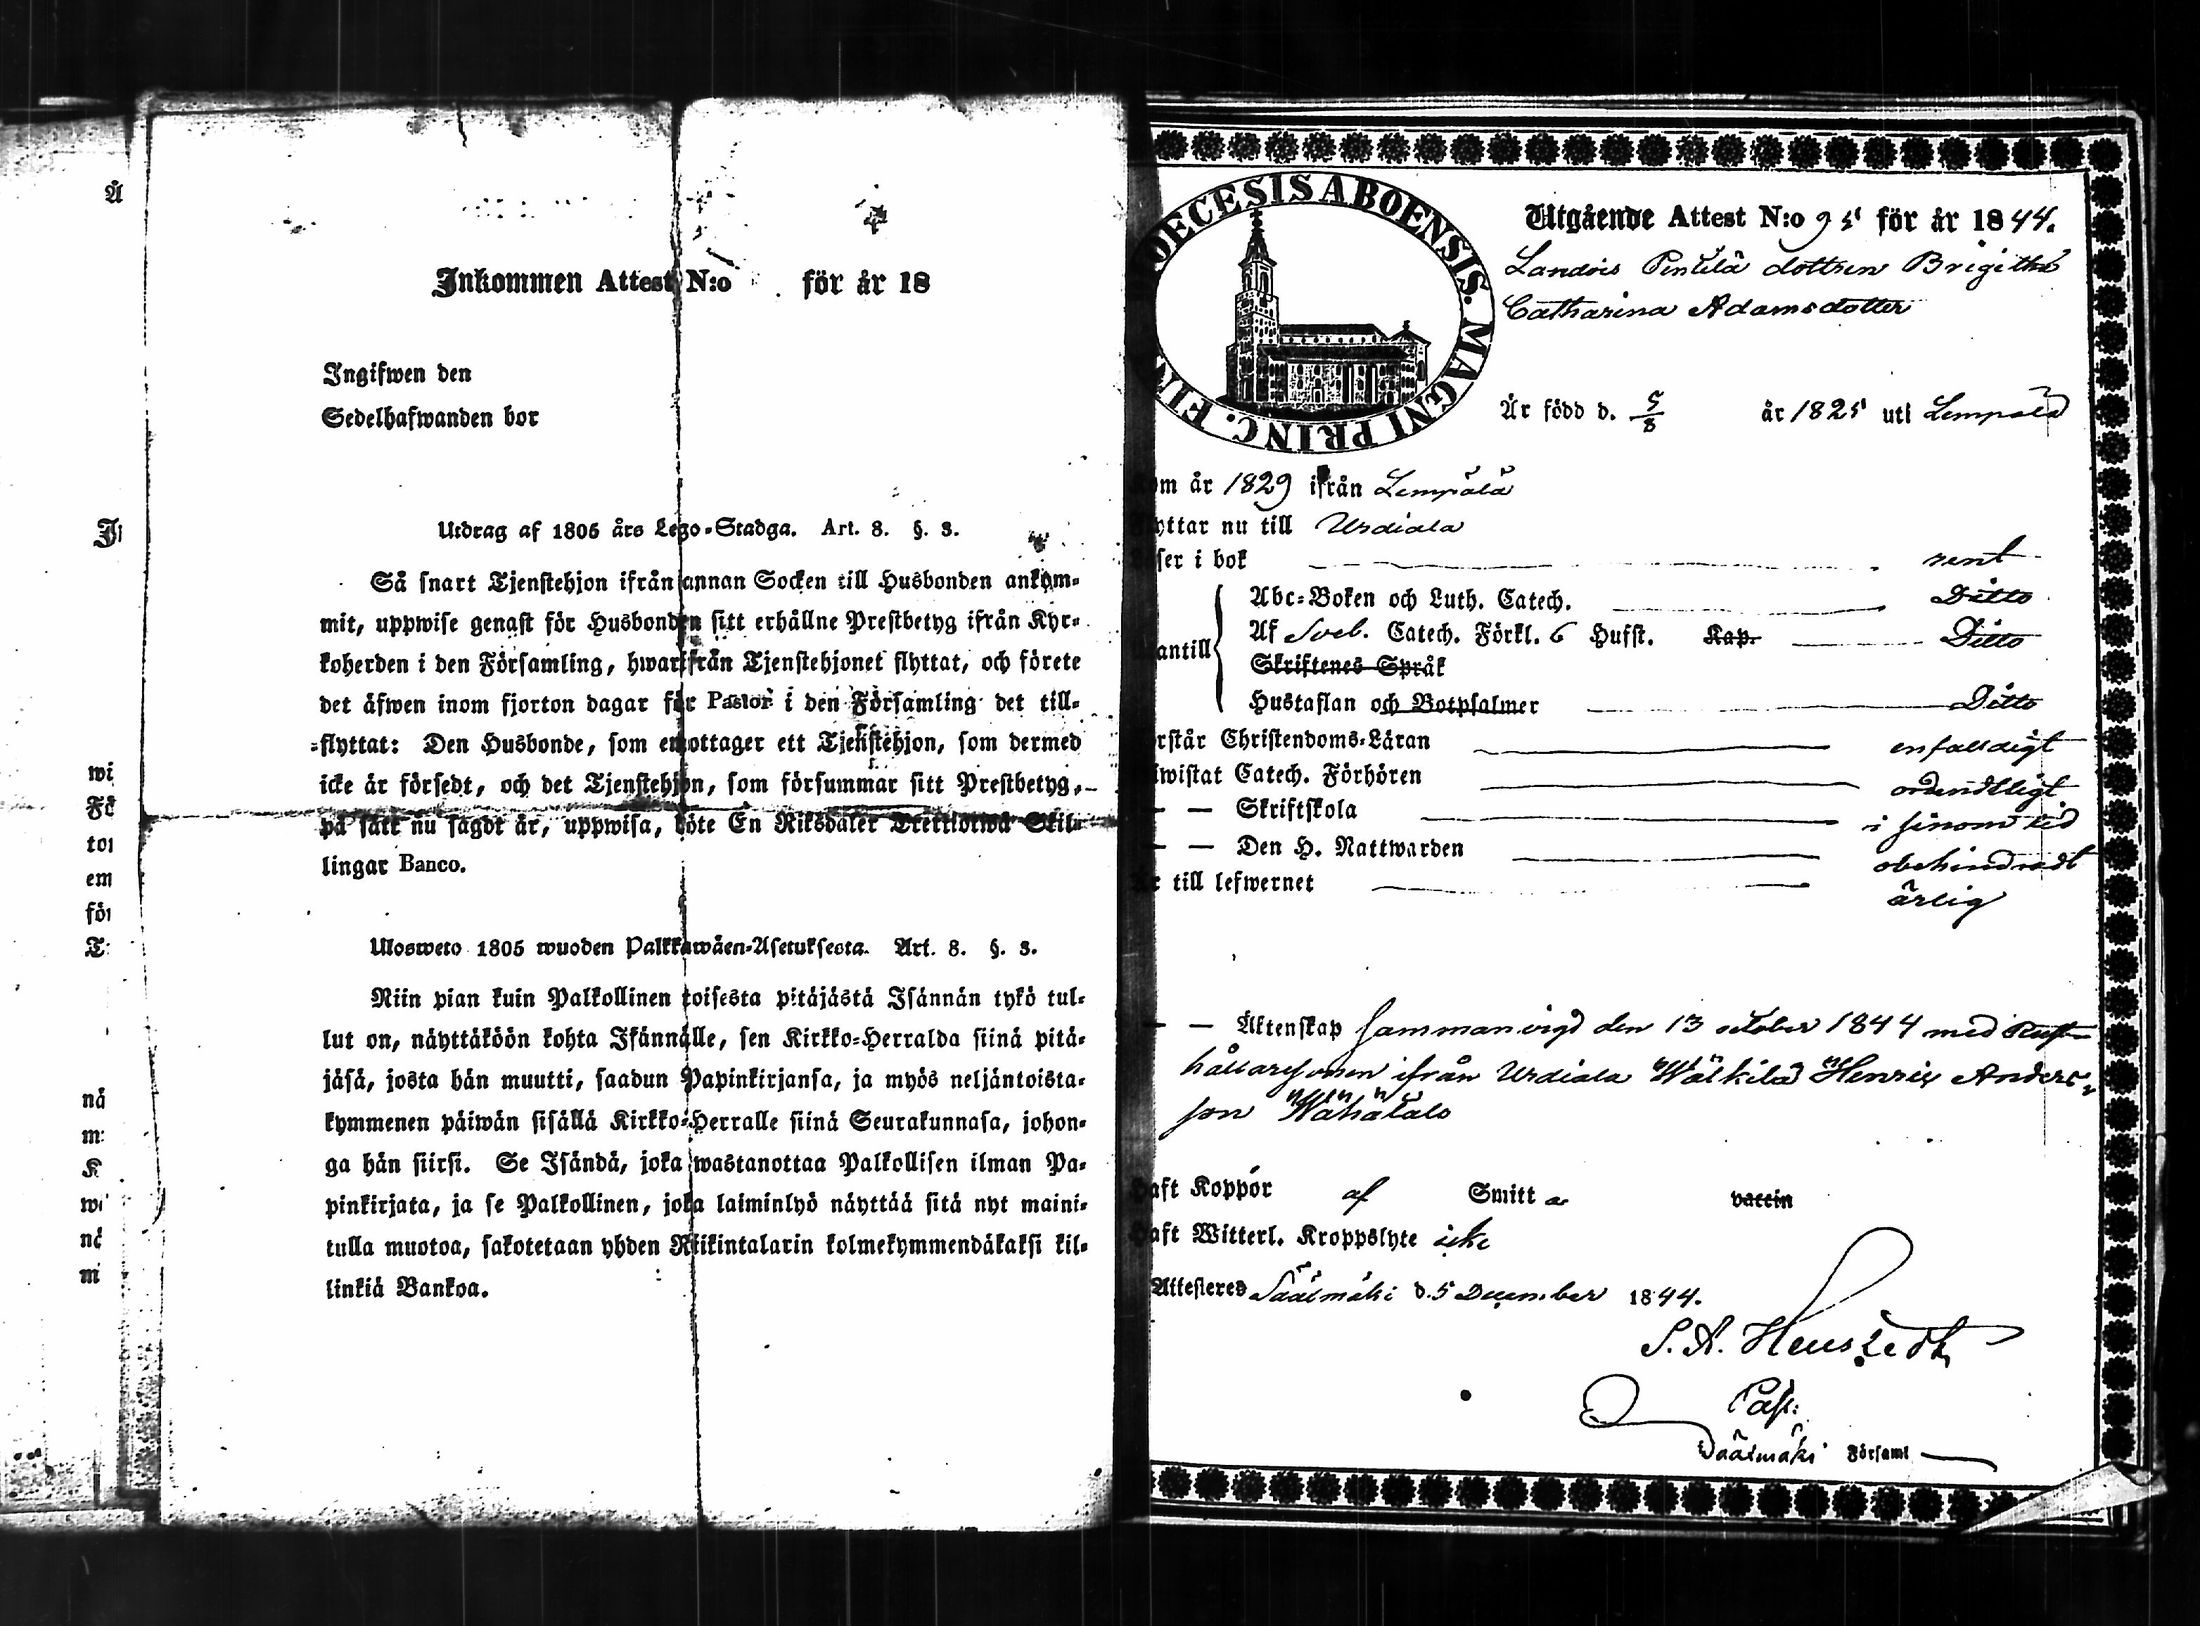 Å
J
wi
Fö
tor
em
för
T
nä
m
K
wi
nä
m
Inkommen Attest N:o för år 18
Ingifwen den
Sedelhafwanden bor
Utdrag af 1805 års Lego-Stadga. Art. 8. §. 3.
Så snart Tjenstehjon ifrån annan Socken till Husbonden ankom-
mit, uppwise genast för Husbonden sitt erhållne Prestbetyg ifrån Kyr-
koherden i den Församling, hwarifrån Tjenstehjonet flyttat, och förete
det äfwen inom fjorton dagar för Pastor i den Församling det till-
flyttat: Den Husbonde, som emottager ett Tjenstehjon, som dermed
icke är försedt, och det Tjenstehjon, som försummar sitt Prestbetyg,
på sätt nu sagdt är, uppwisa, böte En Riksdaler Trettiotwå Skil-
lingar Banco.
Ulosweto 1805 wuoden Palkkawäen-Asetuksesta. Art. 8. §. 3.
Niin pian kuin Palkollinen toisesta pitäjästä Isännän tykö tul-
lut on, näyttäköön kohta Isännälle, sen Kirkko-Herralda siinä pitä-
jäsä, josta hän muutti, saadun Papinkirjansa, ja myös neljäntoista-
kymmenen päiwän sisällä Kirkko-Herralle siinä Seurakunnasa, johon-
ga hän siirsi. Se Isändä, joka wastanottaa Palkollisen ilman Pa-
pinkirjata, ja se Palkollinen, joka laiminlyö näyttää sitä nyt maini-
tulla muotoa, sakotetaan yhden Riikintalarin kolmekymmendäkaksi kil-
linkiä Bankoa.
OECESIS ABOENSIS. MAGNI PRINC. FIN
Utgående Attest N:o 95 för år 1844.
Landbs Pentilä dottren Brigitha
Catharina Adamsdotter
Är född d. 5/8 år 1825 uti Lempälä
om år 1829 ifrån Lempälä
yttar nu till Urdiala
ser i bok rent
Abc-Boken och Luth. Catech. Ditto
antill Af Sveb. Catech. Förkl. 6 Hufst. Kap. Ditto
Skriftenes Språk
Hustaflan och Botpsalmer Ditto
rstår Christendoms-Läran enfaldigt
wistat Catech. Förhören ordentligt
— — Skriftskola i sinom tid
— — Den H. Nattwarden obehindradt
r till lefwernet ärlig
— — Äktenskap sammanvigd den 13 october 1844 med Rust-
hållaresonen ifrån Urdiala Wäkilä Henric Anders-
son Wähätalo
aft Koppor af Smitta vaccin
aft Witterl. Kroppslyte icke
Attesteres Sääxmäki d. 5 December 1844.
S. A. Heurstedt
Past:
Sääxmäki Församl